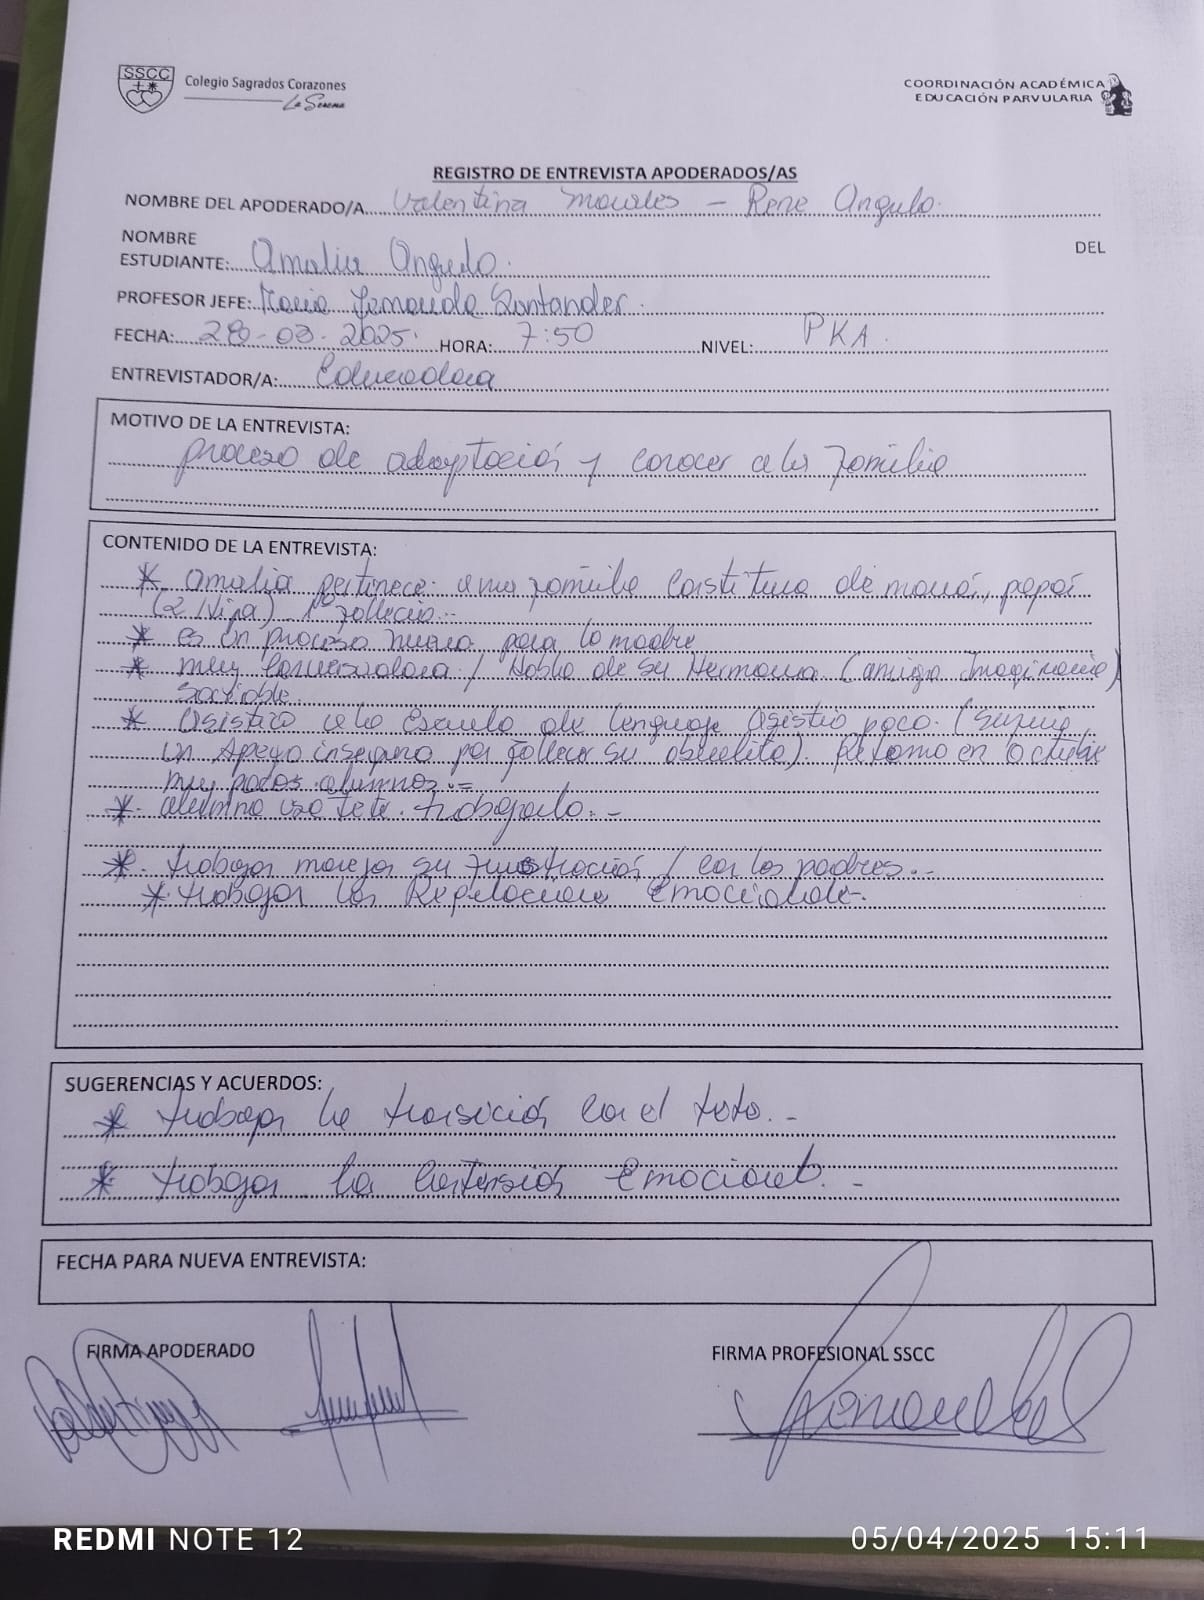 SSCC
Colegio Sagrados Corazones
La Serena
COORDINACIÓN ACADÉMICA
EDUCACIÓN PARVULARIA
REGISTRO DE ENTREVISTA APODERADOS/AS
NOMBRE DEL APODERADO/A Valentina Morales - Rene Angulo.
NOMBRE DEL
ESTUDIANTE: Amalia Angulo.
PROFESOR JEFE: Maria Fernanda Santander.
FECHA: 28-03-2025. HORA: 7:50 NIVEL: PKA.
ENTREVISTADOR/A: Educadora
MOTIVO DE LA ENTREVISTA:
proceso de adaptación y conocer a la familia
CONTENIDO DE LA ENTREVISTA:
* Amalia pertenece a una familia constituida de mamá, papá
(2 Hija)
* es un proceso nuevo para la madre
* muy conversadora / Habla de su Hermana (amiga Imaginaria)
Sociable.
* Asistió a la Escuela de lenguaje Asistió poco. (surgió
un Apego inseguro por fallecer su abuelita). Retomo en octubre
muy pocos alumnos.-
* alumna usa tete. trabajarlo.-
* trabajar manejar su frustración / con los padres.-
* trabajar las Regulaciones Emocionales.-
SUGERENCIAS Y ACUERDOS:
* trabajar la transición con el toto.-
* trabajar la contensión Emocional.-
FECHA PARA NUEVA ENTREVISTA:
FIRMA APODERADO FIRMA PROFESIONAL SSCC
REDMI NOTE 12 05/04/2025 15:11